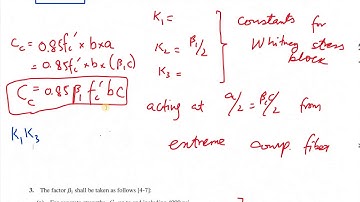 C_c = 0.85 f_c' × b × a
= 0.85 f_c' × b × (β₁c)
C_c = 0.85 β₁ f_c' b c
K₁ K₃
K₁ =
K₂ = β₁/2
K₃ =
constants for
Whitney stress
block
acting at a/2 = β₁c/2 from
extreme comp. fiber
3. The factor β₁ shall be taken as follows [4-7]: